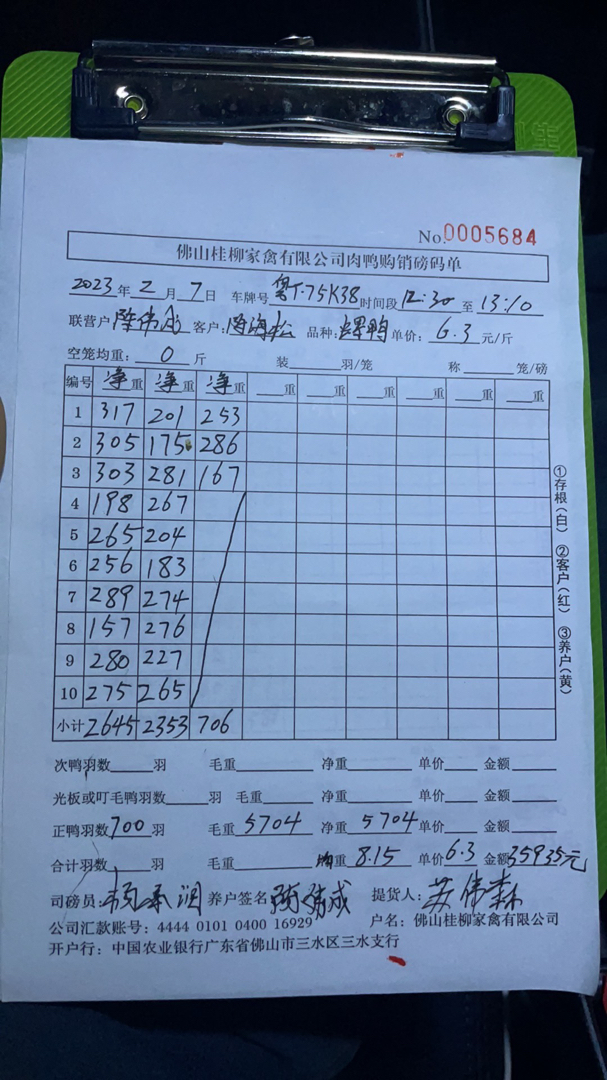 No.0005684
佛山桂柳家禽有限公司肉鸭购销磅码单
2023年2月7日 车牌号 粤T·75K38 时间段 12:30 至 13:10
联营户 陈伟成 客户: 海松 品种: 螺鸭 单价: 6.3 元/斤
空笼均重: 0 斤 装 羽/笼 称 笼/磅
编号 净重 净重 净重 重 重 重 重 重 重
1 317 201 253
2 305 175 286
3 303 281 167
4 198 267
5 265 204
6 256 183
7 289 274
8 157 276
9 280 227
10 275 265
小计 2645 2353 706
①存根(白) ②客户(红) ③养户(黄)
次鸭羽数 羽 毛重 净重 单价 金额
光板或叮毛鸭羽数 羽 毛重 净重 单价 金额
正鸭羽数 700 羽 毛重 5704 净重 5704 单价 金额
合计羽数 羽 毛重 均重 8.15 单价 6.3 金额 35935元
司磅员: 养户签名 提货人: 苏伟森
公司汇款账号: 4444 0101 0400 16929 户名: 佛山桂柳家禽有限公司
开户行: 中国农业银行广东省佛山市三水区三水支行